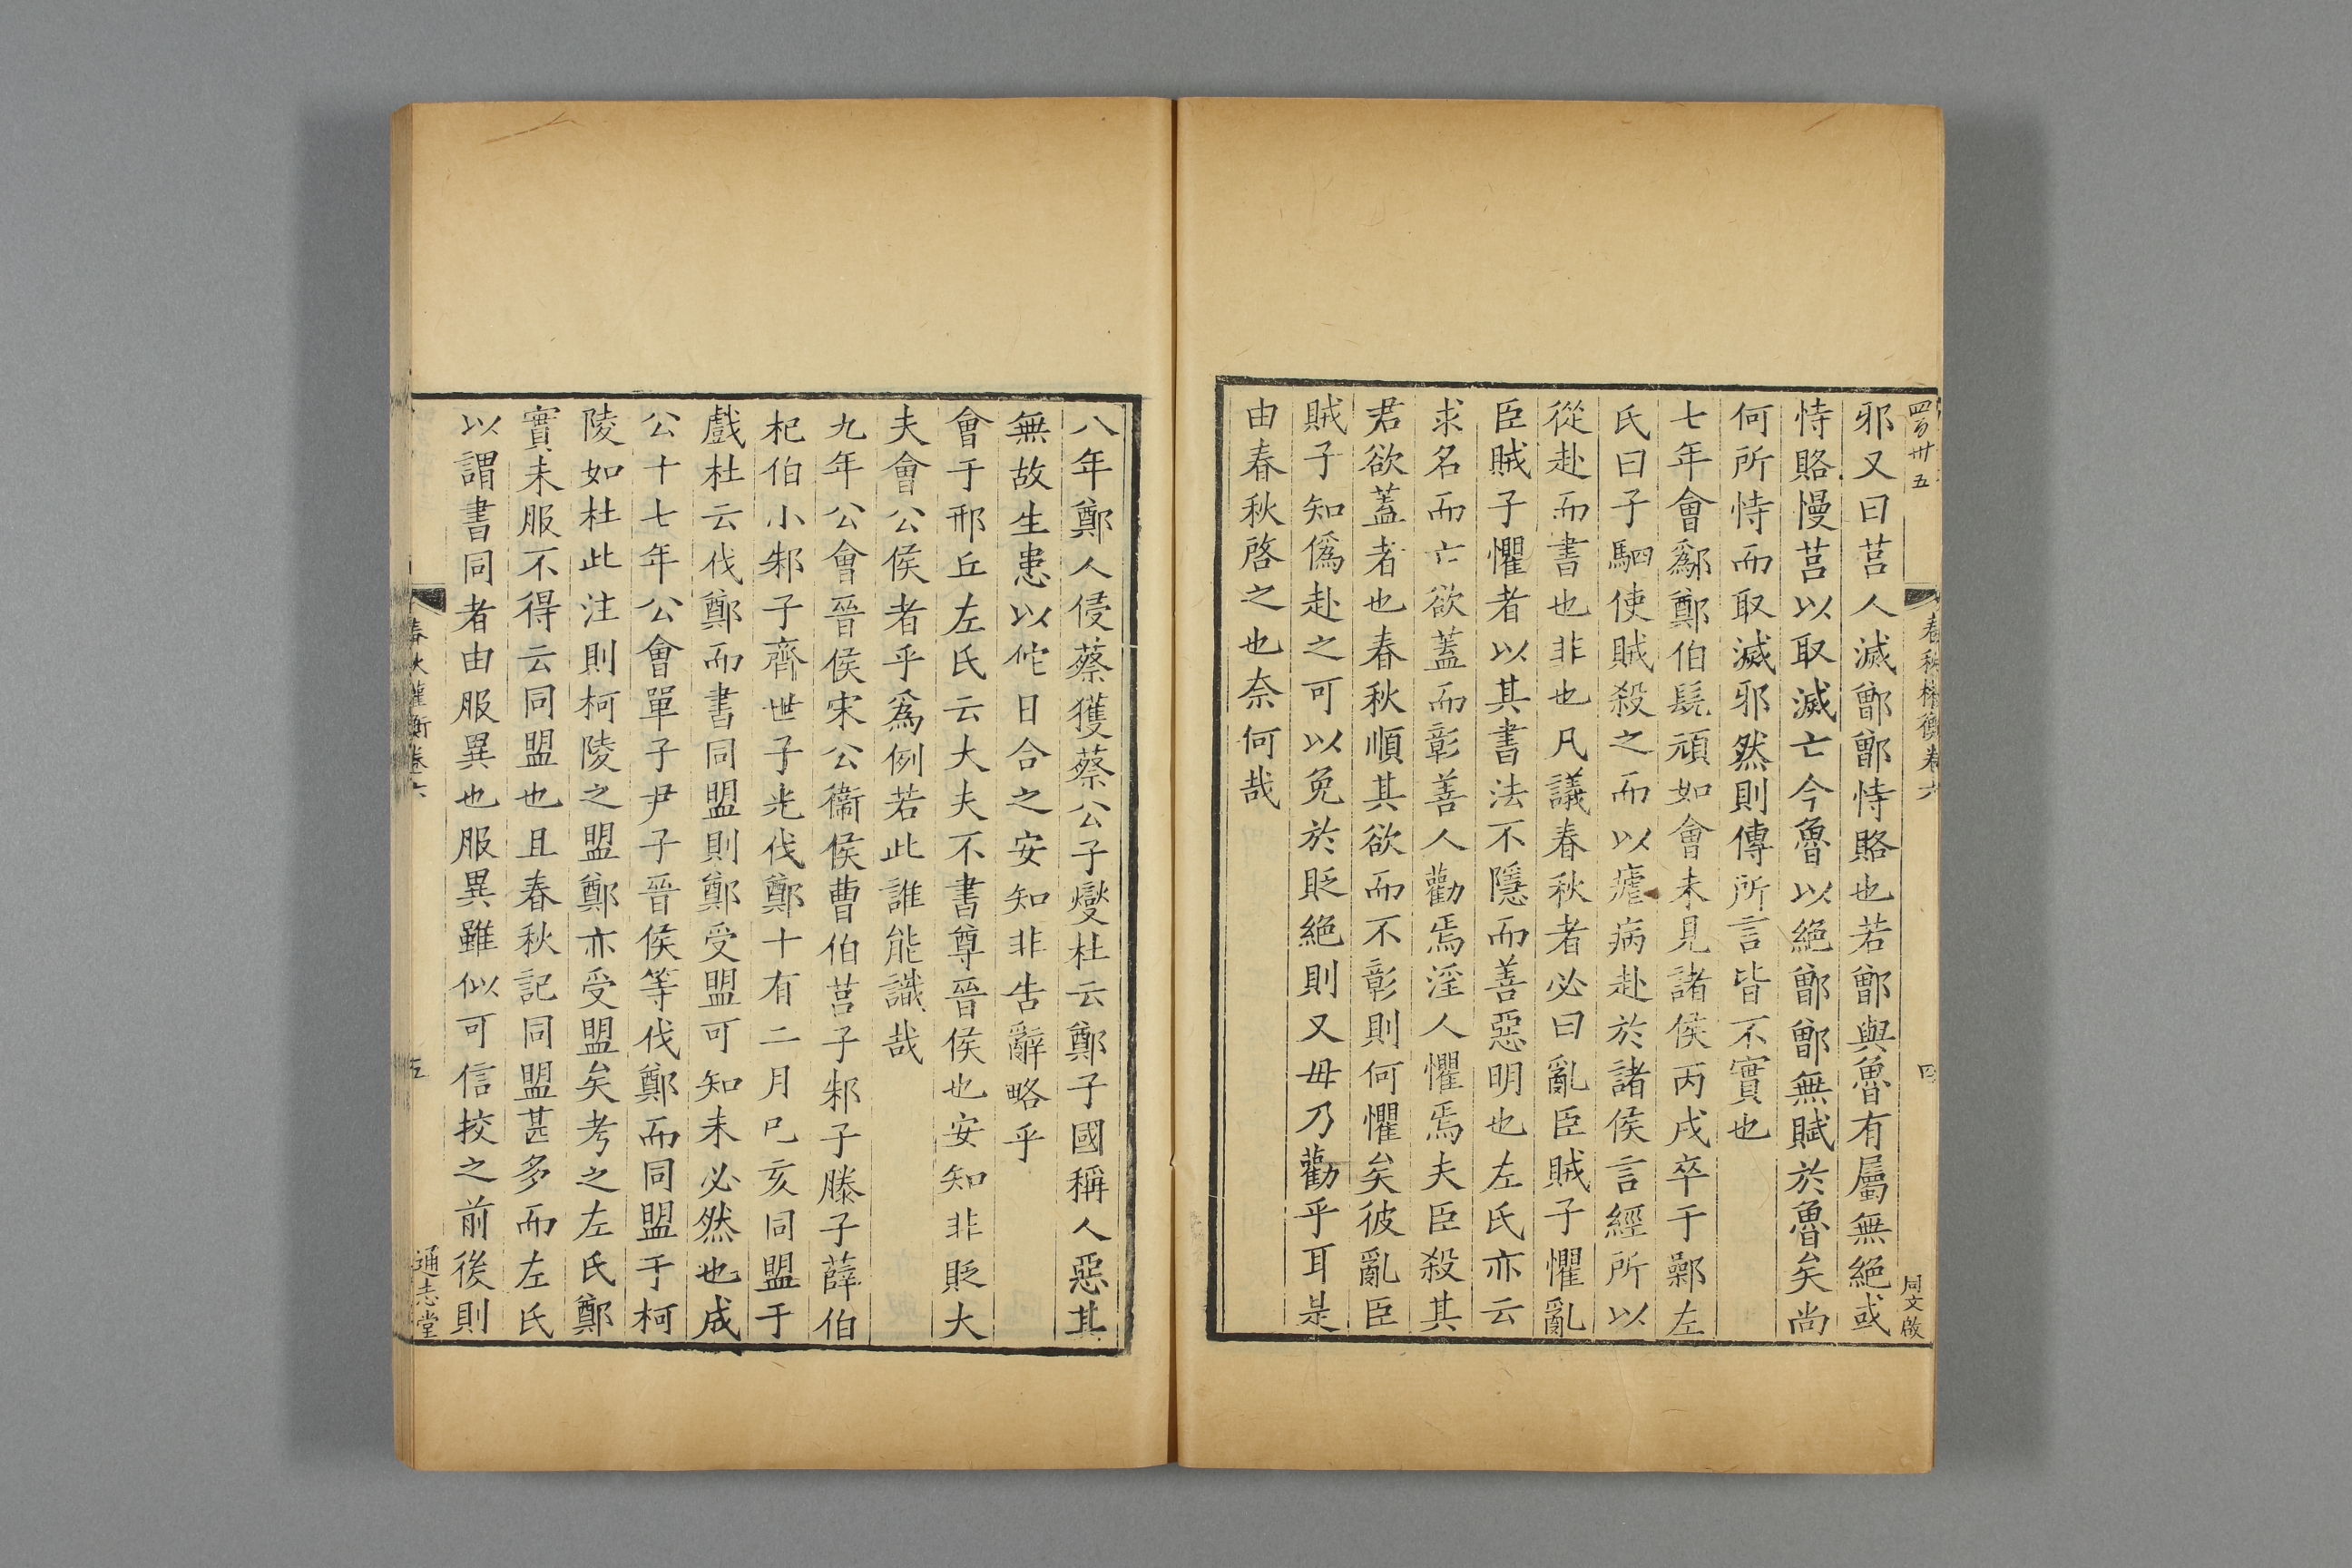 四百卅五
春秋權衡卷六
四
同文啟
邪又曰莒人滅鄫鄫恃賂也若鄫與魯有屬無絕或
恃賂慢莒以取滅亡今魯以絕鄫鄫無賦於魯矣尚
何所恃而取滅邪然則傳所言皆不實也
七年會鄬鄭伯髡頑如會未見諸侯丙戌卒于鄵左
氏曰子駟使賊殺之而以瘧病赴於諸侯言經所以
從赴而書也非也凡議春秋者必曰亂臣賊子懼亂
臣賊子懼者以其書法不隱而善惡明也左氏亦云
求名而亡欲蓋而彰善人勸焉淫人懼焉夫臣殺其
君欲蓋者也春秋順其欲而不彰則何懼矣彼亂臣
賊子知偽赴之可以免於貶絕則又毋乃勸乎耳是
由春秋啓之也奈何哉
八年鄭人侵蔡獲蔡公子燮杜云鄭子國稱人惡其
無故生患以佗日合之安知非告辭略乎
會于邢丘左氏云大夫不書尊晉侯也安知非貶大
夫會公侯者乎爲例若此誰能識哉
九年公會晉侯宋公衞侯曹伯莒子邾子滕子薛伯
杞伯小邾子齊世子光伐鄭十有二月己亥同盟于
戲杜云伐鄭而書同盟則鄭受盟可知未必然也成
公十七年公會單子尹子晉侯等伐鄭而同盟于柯
陵如杜此注則柯陵之盟鄭亦受盟矣考之左氏鄭
實未服不得云同盟也且春秋記同盟甚多而左氏
以謂書同者由服異也服異雖似可信挍之前後則
春秋權衡卷六
五
通志堂